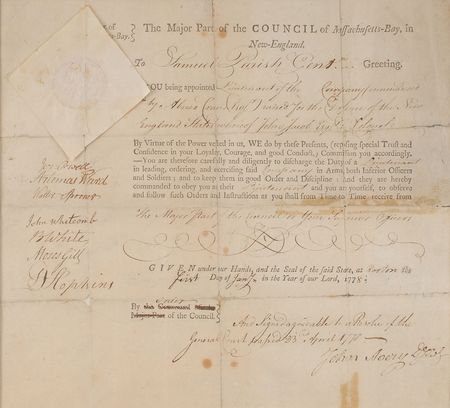 of
The Major Part of the COUNCIL of Massachusetts-Bay, in
-Bay.
New-England.
To Samuel Parish Gent. Greeting.
YOU being appointed Lieutenant of the Company
raised for the Defence of the New
England States whereof John Jacob Esq. is Colonel
By Virtue of the Power vested in us, WE do by these Presents, (reposing special Trust and
Confidence in your Loyalty, Courage, and good Conduct,) Commission you accordingly.
—You are therefore carefully and diligently to discharge the Duty of a Lieutenant
in leading, ordering, and exercising said Company in Arms, both Inferior Officers
and Soldiers; and to keep them in good Order and Discipline; and they are hereby
commanded to obey you as their Lieutenant and you are yourself, to observe
and follow such Orders and Instructions as you shall from Time to Time receive from
The Major Part of the Council or Your Superior Officers
Jer Powell
Artemas Ward
Walter Spooner
John Whitcomb
B White
Moses Gill
D Hopkins
GIVEN under our Hands, and the Seal of the said State, at Boston the
first Day of Jany in the Year of our Lord, 1778
By the Command
Major Part of the Council.
And Signed agreeable to a Resolve of the
General Court passed 23d April 177
John Avery Dy Secy